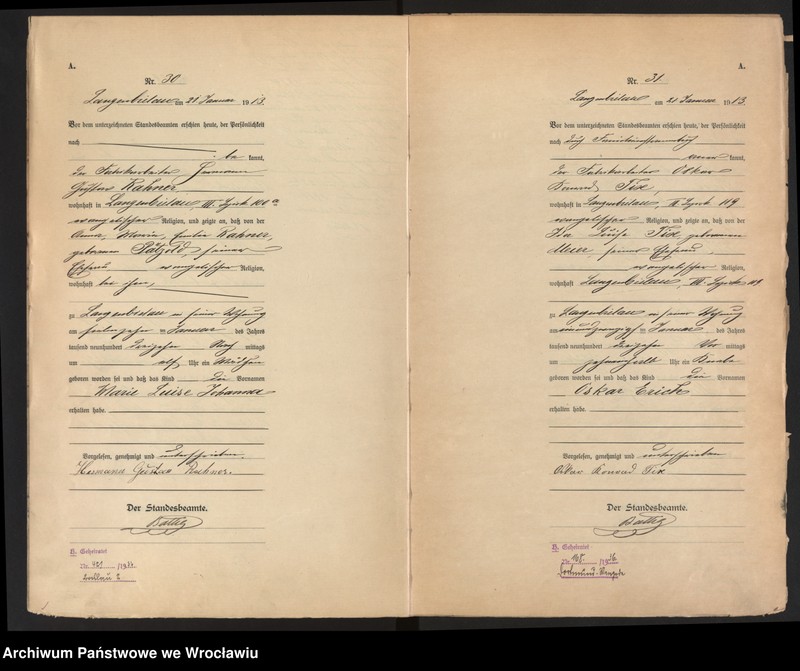 A.
Nr. 30
Langenbielau am 21 Januar 1913.
Vor dem unterzeichneten Standesbeamten erschien heute, der Persönlichkeit
nach
be kannt,
der Fabrikarbeiter Hermann
Gustav
wohnhaft in Langenbielau III. Bezirk
evangelischer Religion, und zeigte an, daß von der
Anna, Maria,
geborenen Pätzold, seiner
Ehefrau evangelischer Religion,
wohnhaft bei ihm,
zu Langenbielau in seiner Wohnung
am Januar des Jahres
tausend neunhundert dreizehn Nach mittags
um elf Uhr ein Mädchen
geboren worden sei und daß das Kind die Vornamen
Marie Luise Johanna
erhalten habe.
Vorgelesen, genehmigt und unterschrieben.
Hermann Gustav
Der Standesbeamte.
H. Geheiratet
Nr. /19
A.
Nr. 31.
Langenbielau am 21 Januar 1913.
Vor dem unterzeichneten Standesbeamten erschien heute, der Persönlichkeit
nach durch
kannt,
der Fabrikarbeiter Oskar
Konrad Tix,
wohnhaft in Langenbielau, Bezirk 119
evangelischer Religion, und zeigte an, daß von der
Ida Luise Tix geborenen
seiner Ehefrau,
evangelischer Religion,
wohnhaft Langenbielau, Bezirk 119
zu Langenbielau in seiner Wohnung
am einundzwanzigsten Januar des Jahres
tausend neunhundert dreizehn Vor mittags
um Uhr ein Knabe
geboren worden sei und daß das Kind die Vornamen
Oskar Erich
erhalten habe.
Vorgelesen, genehmigt und unterschrieben
Oskar Konrad Tix
Der Standesbeamte.
H. Geheiratet
Nr. /19
Archiwum Państwowe we Wrocławiu